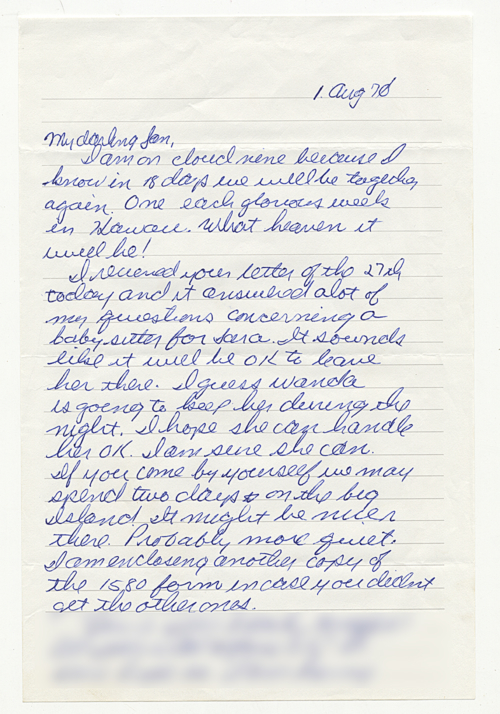 1 Aug 70
My darling Jan,
I am on cloud nine because I
know in 18 days we will be together
again. One each glorious week
in Hawaii. What heaven it
will be!
I received your letter of the 27th
today and it answered alot of
my questions concerning a
baby sitter for Sara. It sounds
like it will be OK to leave
her there. I guess wanda
is going to keep her during the
night. I hope she can handle
her OK. I am sure she can.
If you come by yourself we may
spend two days on the big
Island. It might be nicer
there. Probably more quiet.
I am enclosing another copy of
the 1580 form in case you didn't
get the other ones.